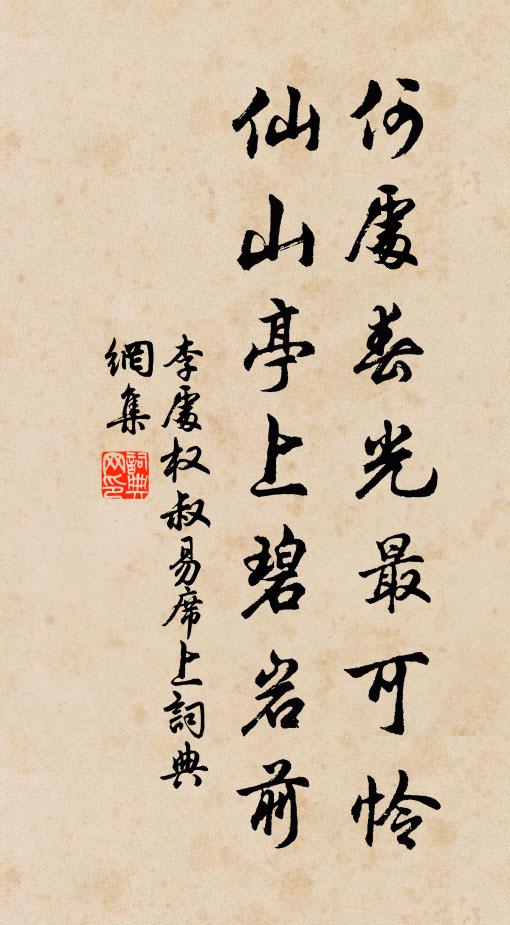 何處春光最可怜
仙山亭上碧岩前
李處权叔易席上詞典
網集
詞典網印